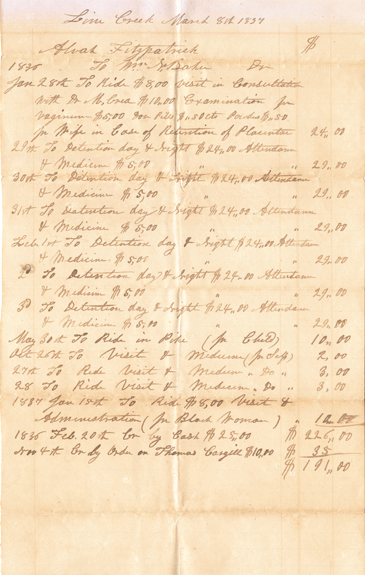 Line Creek March 8th 1837
Alvah Fitzpatrick $
1836 To Wm J Baker Dr
Jan 28th To Ride $8,00 visit in Consultation
with Dr McCrea $10,00 Examination per
vaginum $5,00 50cts $,,50
for Wife in Case of Retention of Placenta 24,,00
29th To Detention day & Night $24,,00 Attendance
& Medicine $5,00 " " 29,,00
30th To Detention day & Night $24,,00 Attendance
& Medicine $5,00 " " 29,,00
31st To Detention day & Night $24,,00 Attendance
& Medicine $5,00 " " 29,,00
Feb 1st To Detention day & Night $24,,00 Attendance
& Medicine $5,00 " " 29,,00
2d To Detention day & Night $24,,00 Attendance
& Medicine $5,00 " " 29,,00
3d To Detention day & Night $24,,00 Attendance
& Medicine $5,00 " " 29,,00
May 30th To Ride in Pike (for Child) 10,,00
Oct 26th To Visit & Medicine (for Self) 2,,00
27th To Ride Visit & Medicin " Do " 3,00
28 To Ride Visit & Medicin " Do " 3,00
1837 Jan 18th To Ride $8,00 Visit &
Administration (for Black Woman) " 10,00
1836 Feb. 20th Cr by Cash $25,00 $ 226,,00
Nov 4th Cr By Order on Thomas Cargill $10,00 $ 35
$ 191,,00